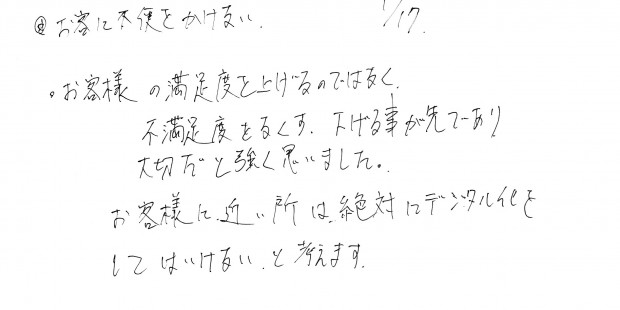 ④ お客に不便をかけない. 1/17.
。お客様の満足度を上げるのではなく、
不満足度をなくす、下げる事が先であり
大切だと強く思いました。
お客様に近い所は、絶対にデジタル化を
してはいけない、と考えます.